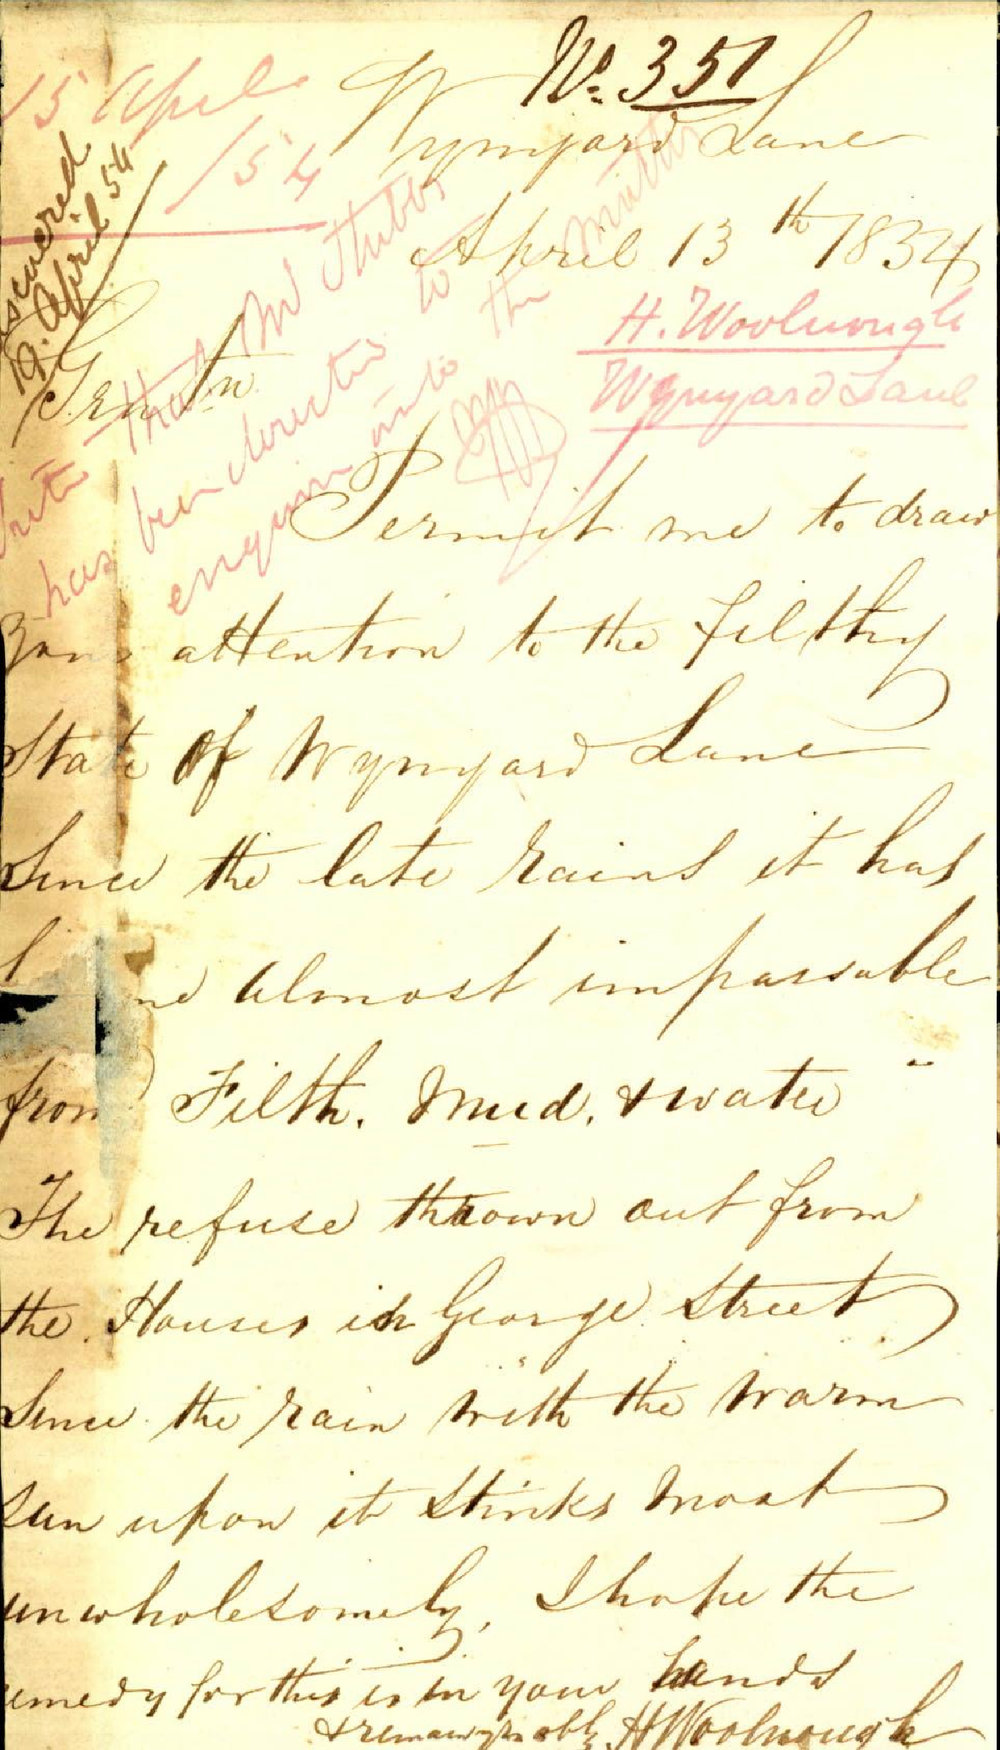 No. 351
15 April
/54
Wynyard Lane
Answered
19. April 54
April 13th 1854
H. Woolnough
Wynyard Lane
Gentn
Write that Mr Stubbs
has been directed to
enquire into the matter
Permit me to draw
your attention to the filthy
State of Wynyard Lane
Since the late rains it has
almost impassable
from Filth. Mud. & water
The refuse thrown out from
the Houses in George Street
Since the rain with the warm
sun upon it Stinks most
unwholesomely, I hope the
remedy for this is in your hands
& remain yr obt H Woolnough